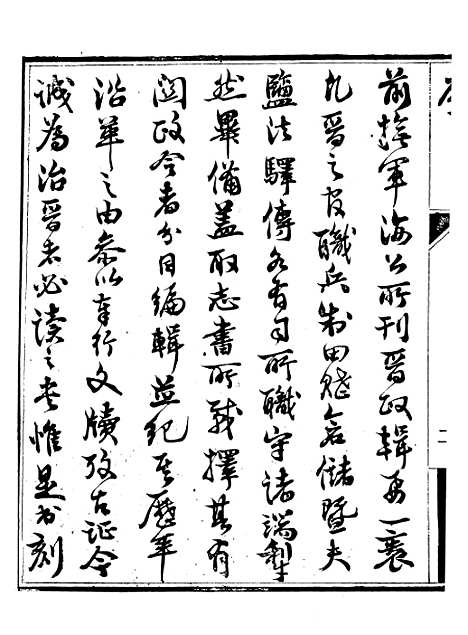 前撫軍海公所刊晉政輯要一裘
凡晉之官職兵制田賦倉儲暨夫
鹽法驛傳各有司所職守諸端犁
然畢備蓋取志書所載擇其有
関政令者分目編輯並紀其歷年
沿革之由参以奉行文牘攷古証今
誠為治晉者必讀之書惟是書刻
二